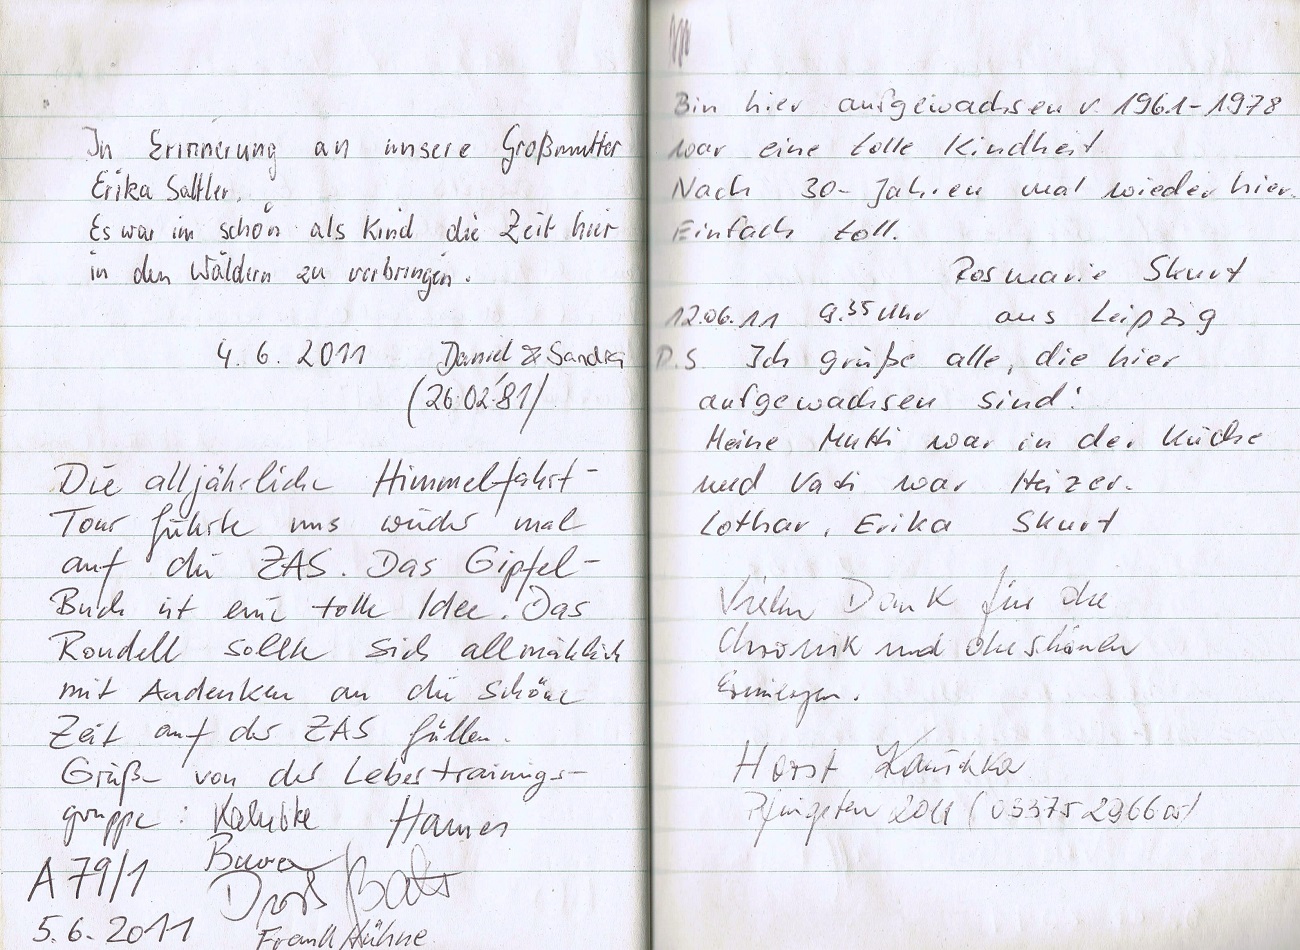 In Erinnerung an unsere Großmutter
Erika Sattler.
Es war im schön als Kind die Zeit hier
in den Wäldern zu verbringen.
4.6.2011 Daniel & Sandra
(26.02.81)
Die alljährliche Himmelfahrt-
Tour führte uns wieder mal
auf die ZAS. Das Gipfel-
Buch ist eine tolle Idee. Das
Rondell sollte sich allmählich
mit Andenken an die schöne
Zeit auf der ZAS füllen.
Grüße von der Lebertrainings-
gruppe: Hannes
A 79/1
5.6.2011 Frank Kühne
Bin hier aufgewachsen v. 1961-1978
war eine tolle Kindheit.
Nach 30-Jahren mal wieder hier.
Einfach toll.
Rosmarie Skurt
12.06.11 9.35 Uhr aus Leipzig
P.S. Ich grüße alle, die hier
aufgewachsen sind!
Meine Mutti war in der Küche
und Vati war Heizer.
Lothar, Erika Skurt
Vielen Dank für die
Chronik und die schönen
Horst
Pfingsten 2011 (03375